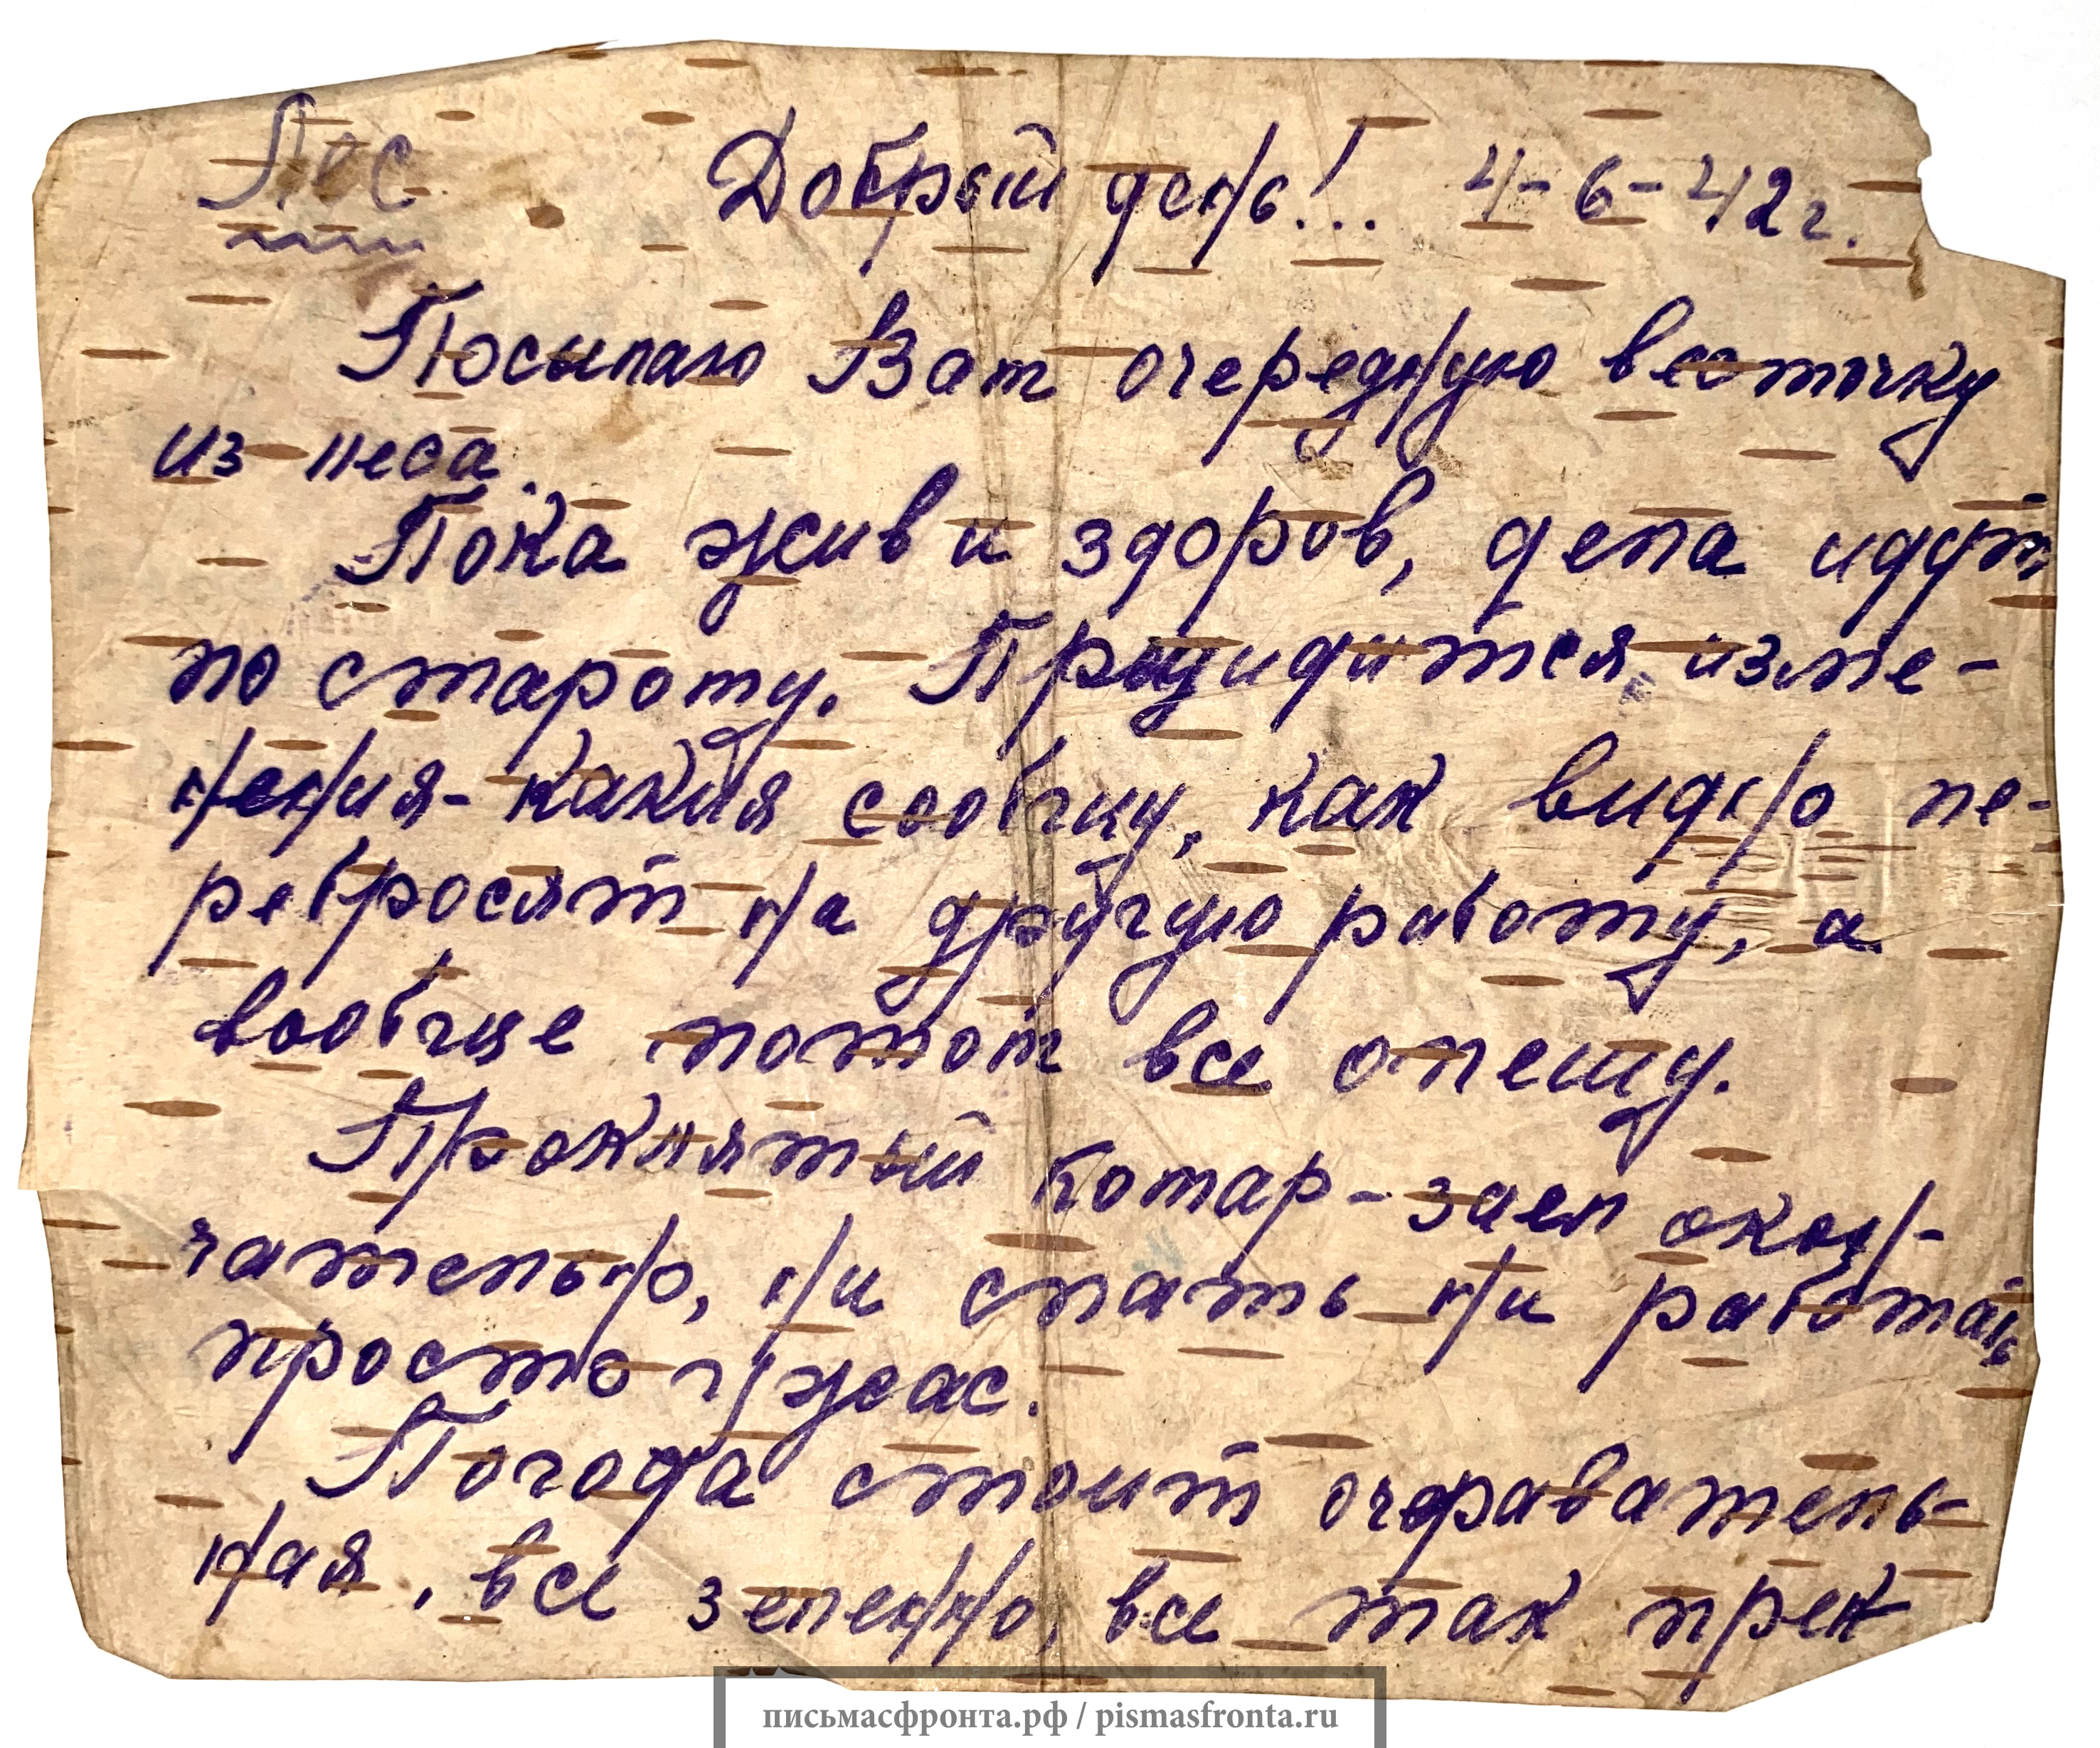 Лес Добрый день!... 4-6-42 г.
Посылаю Вам очередную весточку
из леса.
Пока жив и здоров, дела идут
по старому. Предидится изме-
нения-какия сообщу, как видно пе-
ребросят на другую работу, а
вообще потом все опешу.
Проклятый комар-заел окон-
чательно, ни спать ни работать
просто ужас.
Погода стоит очараватель-
ная, все зеленно, все так прек
письмасфронта.рф / pismasfronta.ru